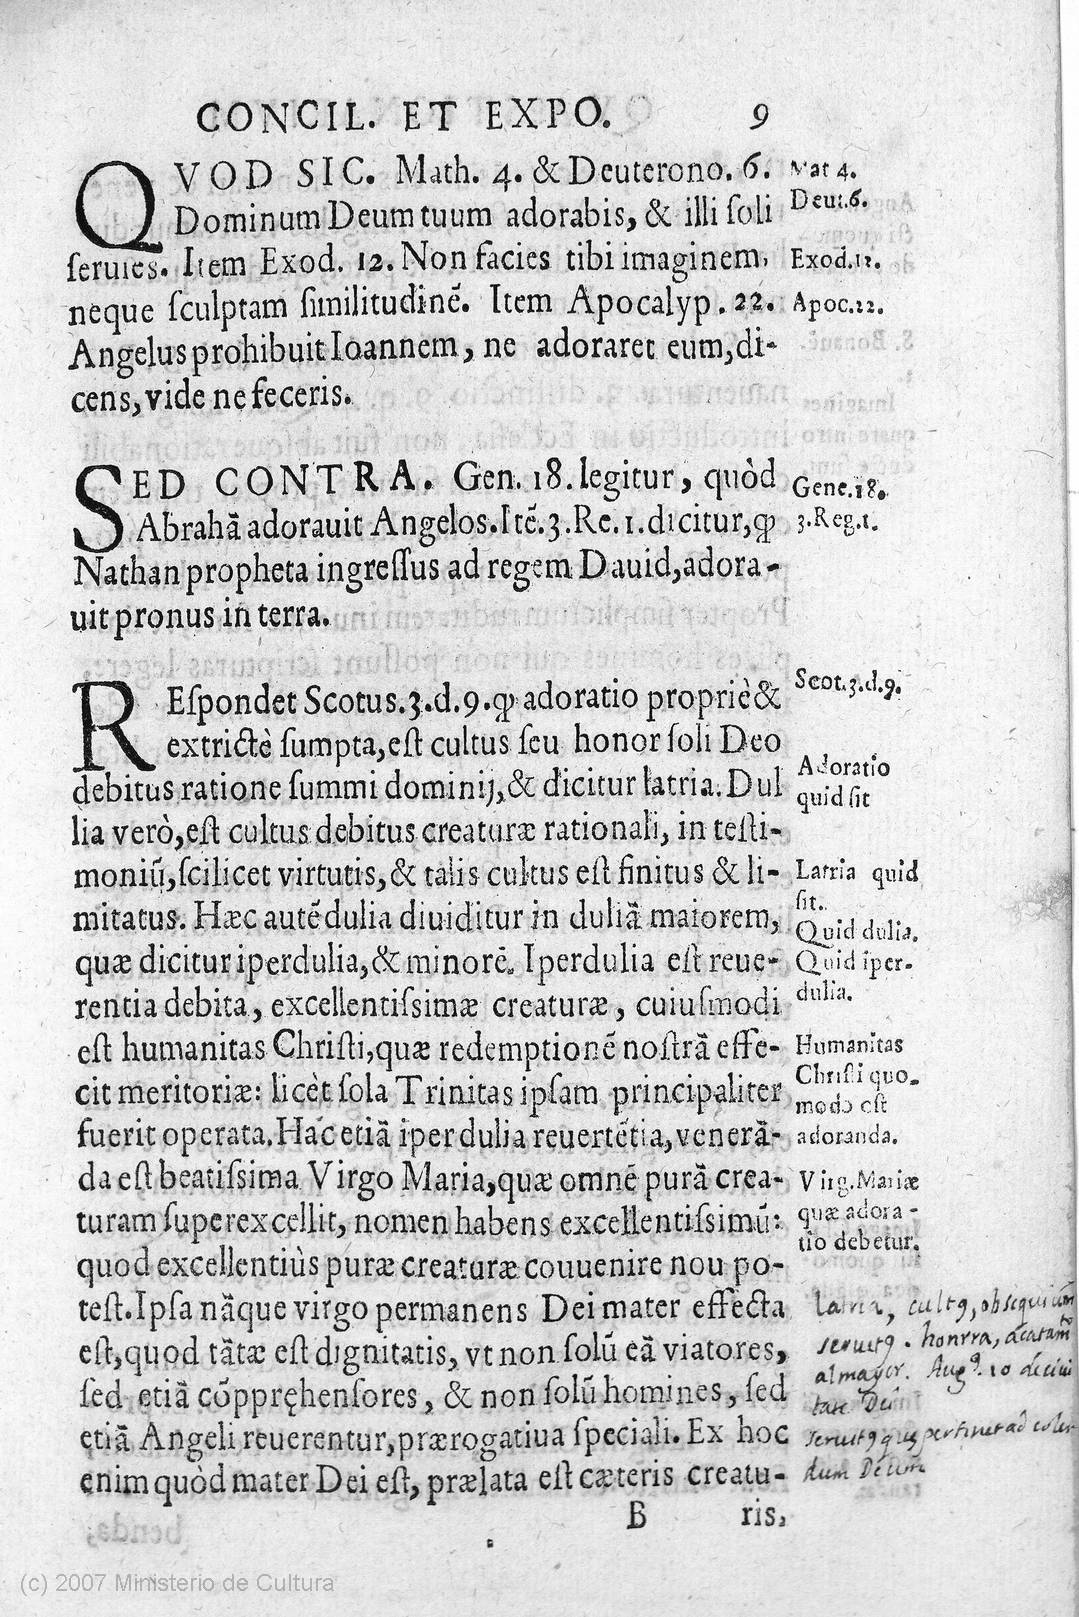 CONCIL. ET EXPO. 9
QVOD SIC. Math. 4. & Deuterono. 6.
Dominum Deum tuum adorabis, & illi ſoli
ſeruies. Item Exod. 12. Non facies tibi imaginem,
neque ſculptam ſimilitudinē. Item Apocalyp. 22.
Angelus prohibuit Ioannem, ne adoraret eum, di-
cens, vide ne feceris.
Mat 4.
Deut.6.
Exod.12.
Apoc.22.
SED CONTRA. Gen. 18. legitur, quòd
Abrahā adorauit Angelos. Itē. 3. Re. 1. dicitur, ꝙ
Nathan propheta ingreſſus ad regem Dauid, adora-
uit pronus in terra.
Gene.18.
3.Reg.1.
REſpondet Scotus. 3. d. 9. ꝙ adoratio propriè &
extrictè ſumpta, eſt cultus ſeu honor ſoli Deo
debitus ratione ſummi dominij, & dicitur latria. Dul
lia verò, eſt cultus debitus creaturæ rationali, in teſti-
moniũ, ſcilicet virtutis, & talis cultus eſt finitus & li-
mitatus. Hæc autē dulia diuiditur in duliā maiorem,
quæ dicitur iperdulia, & minorē. Iperdulia eſt reue-
rentia debita, excellentiſsimæ creaturæ, cuiuſmodi
eſt humanitas Chriſti, quæ redemptionē noſtrā effe-
cit meritoriæ: licèt ſola Trinitas ipſam principaliter
fuerit operata. Hac etiā iperdulia reuertētia, venerā-
da eſt beatiſsima Virgo Maria, quæ omnē purā crea-
turam ſuperexcellit, nomen habens excellentiſsimũ:
quod excellentiùs puræ creaturæ couuenire nou po-
teſt. Ipſa nāque virgo permanens Dei mater effecta
eſt, quod tātæ eſt dignitatis, vt non ſolũ eā viatores,
ſed etiā cōppręhenſores, & non ſolũ homines, ſed
etiā Angeli reuerentur, prærogatiua ſpeciali. Ex hoc
enim quòd mater Dei eſt, prælata eſt cæteris creatu-
B ris,
Scot.3.d.9.
Adoratio
quid ſit
Latria quid
ſit.
Quid dulia.
Quid iper-
dulia.
Humanitas
Chriſti quo-
modo eſt
adoranda.
Virg. Mariæ
quæ adora-
tio debetur.
latria, cult9, obsequium
seruit9. honrra, acatam
to
al mayor. Aug9. 10 de ciui
tate Dei
seruit9 pertinet ad colen
dum Deum
(c) 2007 Ministerio de Cultura